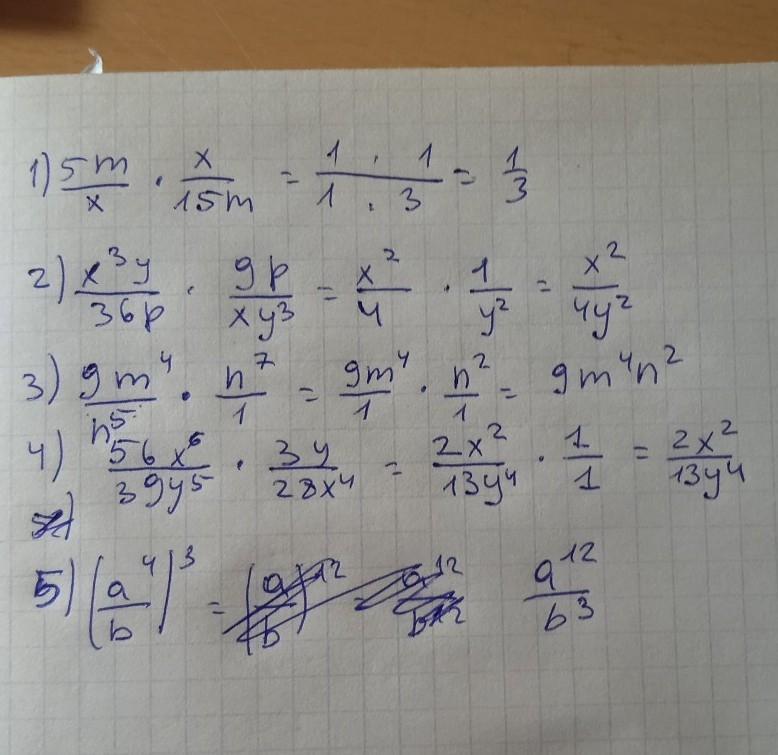 1) 5m/x · x/15m = 1 · 1/1 · 3 = 1/3
2) x³y/36p · 9p/xy³ = x²/4 · 1/y² = x²/4y²
3) 9m⁴/n⁵ · n⁷/1 = 9m⁴/1 · n²/1 = 9m⁴n²
4) 56x⁶/39y⁵ · 3y/28x⁴ = 2x²/13y⁴ · 1/1 = 2x²/13y⁴
5) (a⁴/b)³ = a¹²/b³